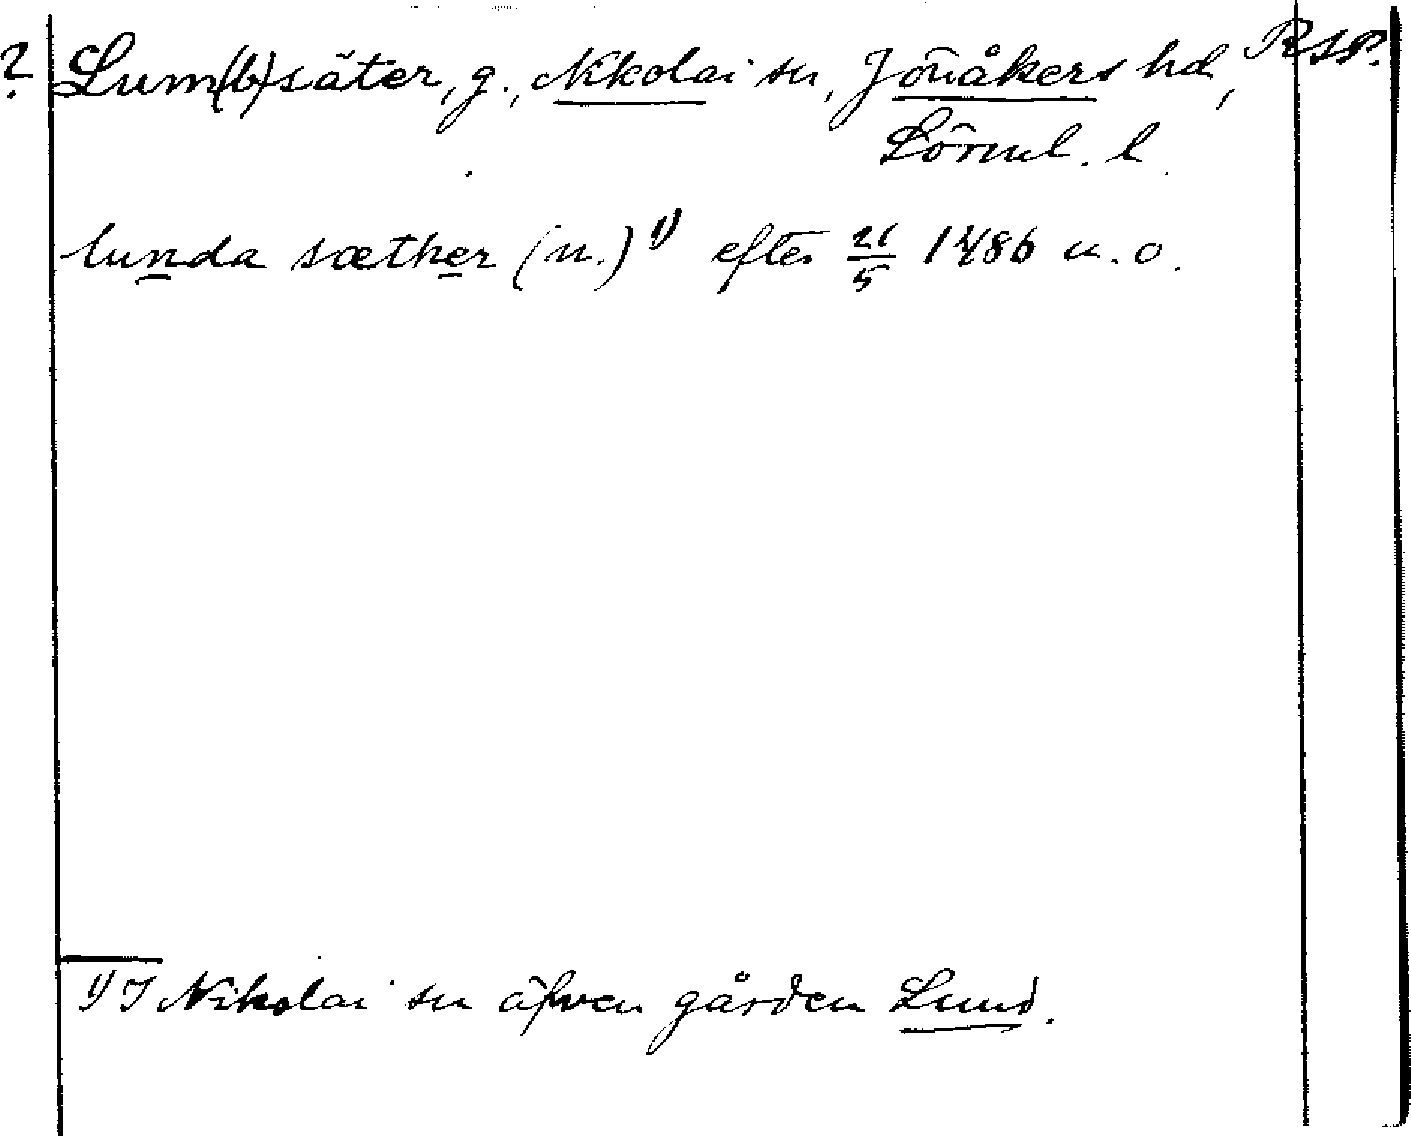 ? Lum(b)säter, g., Nikolai sn, Jönåkers hd,
Sörml. l.
lunda sæther (n.) 1) efter 21/5 1486 u. o.
1) I Nikolai sn äfven gården Lund.